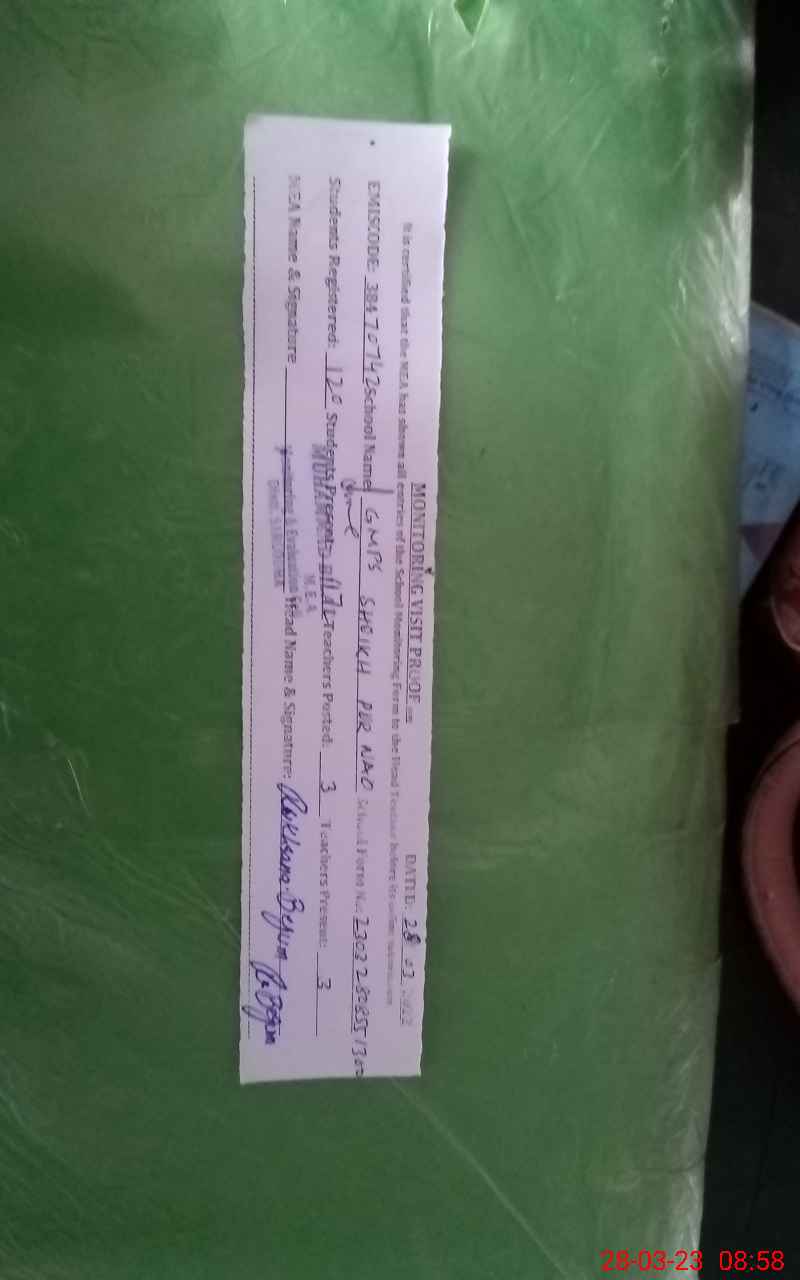 MONITORING VISIT PROOF DATED: 28 03
It is certified that the MEA has shown all entries of the School Monitoring Form to the Head Teacher before its online submission
EMISCODE: 38470742 School Name GMPS SHEIKH PUR NAO School Form No: 23032808551300
Students Registered: 120 Students Present: Teachers Posted: 3 Teachers Present: 3
M.E.A
MEA Name & Signature Head Name & Signature: Rukhsana Begum R. Begum
Monitoring & Evaluation
Distt. SARGODHA
28-03-23 08:58